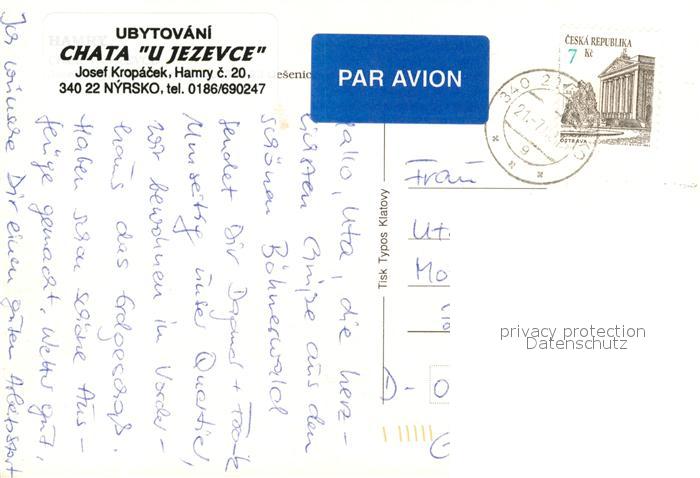 UBYTOVÁNÍ
CHATA "U JEZEVCE"
Josef Kropáček, Hamry č. 20,
340 22 NÝRSKO, tel. 0186/690247
PAR AVION
ČESKÁ REPUBLIKA
7 Kč
OSTRAVA
340 22
Tisk Typos Klatovy
Hallo, Uta, die herz-
lichsten Grüße aus den
schönen Böhmerwald
sendet Dir Dagmar + Frank
Umseitig unser Quartier,
wir bewohnen im Vorder-
haus das Erdgeschoß.
Haben schon schöne Aus-
flüge gemacht. Wetter gut,
Ich wünsche Dir einen guten Arbeitsstart
Frau
Ut
Mo
D-0
privacy protection
Datenschutz